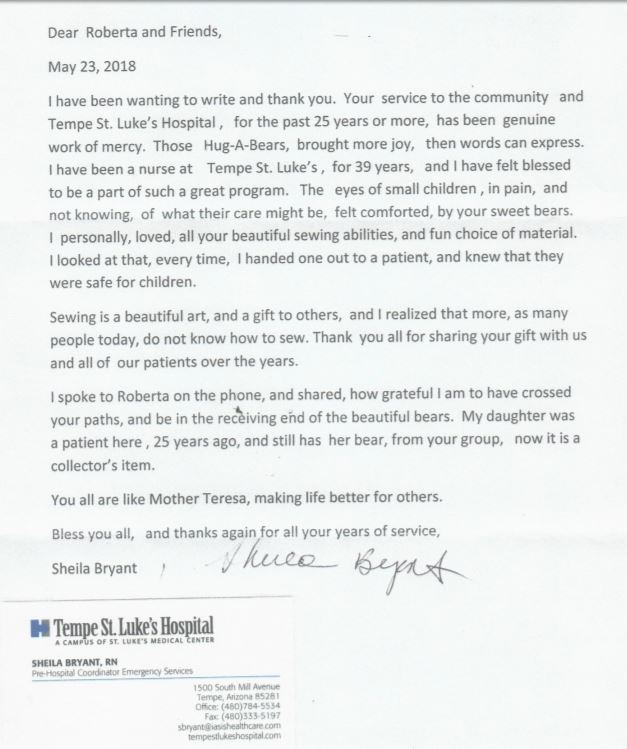 Dear Roberta and Friends,
May 23, 2018
I have been wanting to write and thank you. Your service to the community and
Tempe St. Luke's Hospital , for the past 25 years or more, has been genuine
work of mercy. Those Hug-A-Bears, brought more joy, then words can express.
I have been a nurse at Tempe St. Luke's , for 39 years, and I have felt blessed
to be a part of such a great program. The eyes of small children , in pain, and
not knowing, of what their care might be, felt comforted, by your sweet bears.
I personally, loved, all your beautiful sewing abilities, and fun choice of material.
I looked at that, every time, I handed one out to a patient, and knew that they
were safe for children.
Sewing is a beautiful art, and a gift to others, and I realized that more, as many
people today, do not know how to sew. Thank you all for sharing your gift with us
and all of our patients over the years.
I spoke to Roberta on the phone, and shared, how grateful I am to have crossed
your paths, and be in the receiving end of the beautiful bears. My daughter was
a patient here , 25 years ago, and still has her bear, from your group, now it is a
collector's item.
You all are like Mother Teresa, making life better for others.
Bless you all, and thanks again for all your years of service,
Sheila Bryant Sheila Bryant
Tempe St. Luke's Hospital
A CAMPUS OF ST. LUKE'S MEDICAL CENTER
SHEILA BRYANT, RN
Pre-Hospital Coordinator Emergency Services
1500 South Mill Avenue
Tempe, Arizona 85281
Office: (480)784-5534
Fax: (480)333-5197
sbryant@iasishealthcare.com
tempestlukeshospital.com